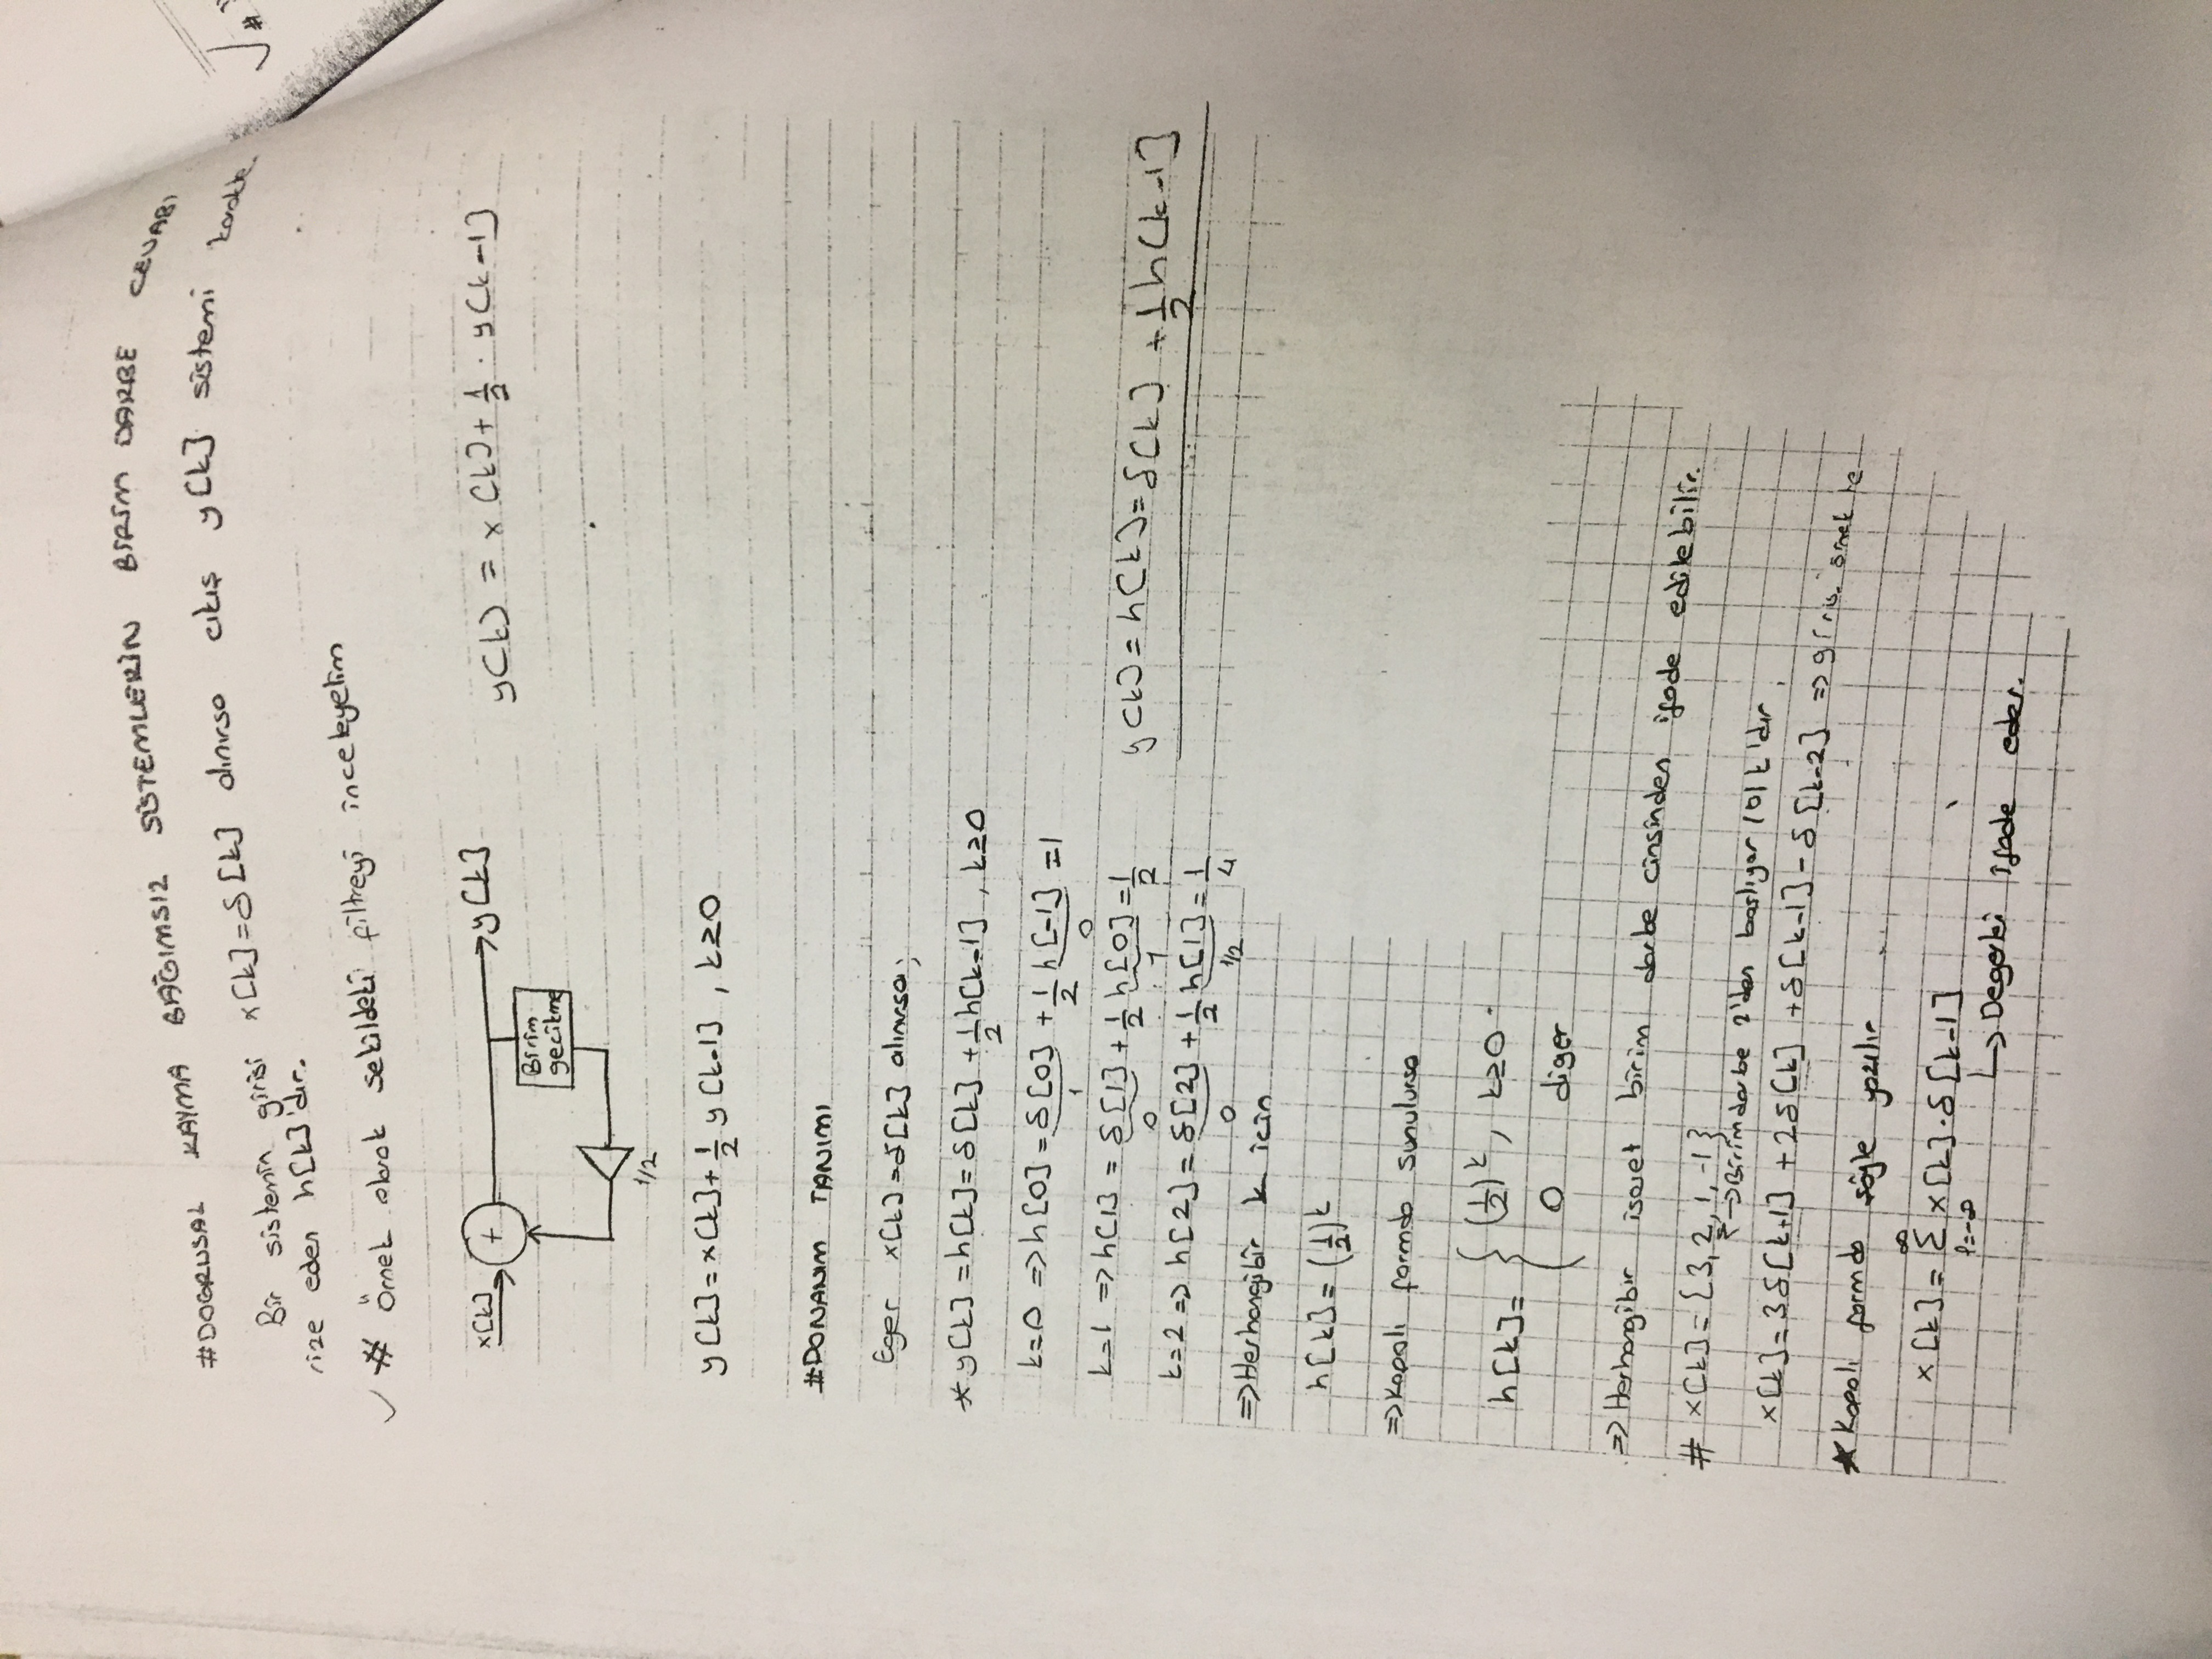 #DOĞRUSAL KAYMA BAĞIMSIZ SİSTEMLERİN BİRİM DARBE CEVABI
Bir sistemin girisi x[k]=δ[k] alınırsa çıkış y[k] sistemi karakte
rize eden h[k]'dır.
# Örnek olarak sekildeki filtreyi inceleyelim
x[k] + y[k]
y[k] = x[k]+ 1/2 · y[k-1]
Birim
gecikme
1/2
y[k]=x[k]+ 1/2 y[k-1] , k≥0
#DONANIM TANIMI
Eger x[k]=δ[k] alınırsa;
*y[k] =h[k]=δ[k] + 1/2 h[k-1] , k≥0
k=0 =>h[0] =δ[0] + 1/2 h[-1] =1
1 0
k=1 =>h[1] = δ[1] + 1/2 h[0] = 1/2
0 1
y[k]=h[k]=δ[k] + 1/2 h[k-1]
k=2 => h[2] = δ[2] + 1/2 h[1] = 1/4
0 1/2
=>Herhangibir k icin
h[k]= (1/2)^k
=>Kapalı formda sunulursa
h[k]= { (1/2)^k , k≥0
0 diger
=>Herhangibir isaret birim darbe cinsinden ifade edilebilir.
# x[k]= {3, 2, 1, -1}
->Birim darbe 2'den baslıyor (0) k'dır
x[k]=3δ[k+1] +2δ[k] +δ[k-1]-δ[k-2] => giris. örnekte
*Kapalı formda şöyle yazılır
x[k]= ∞ Σ l=-∞ x[k]·δ[k-1]
↳ Degerleri ifade eder.